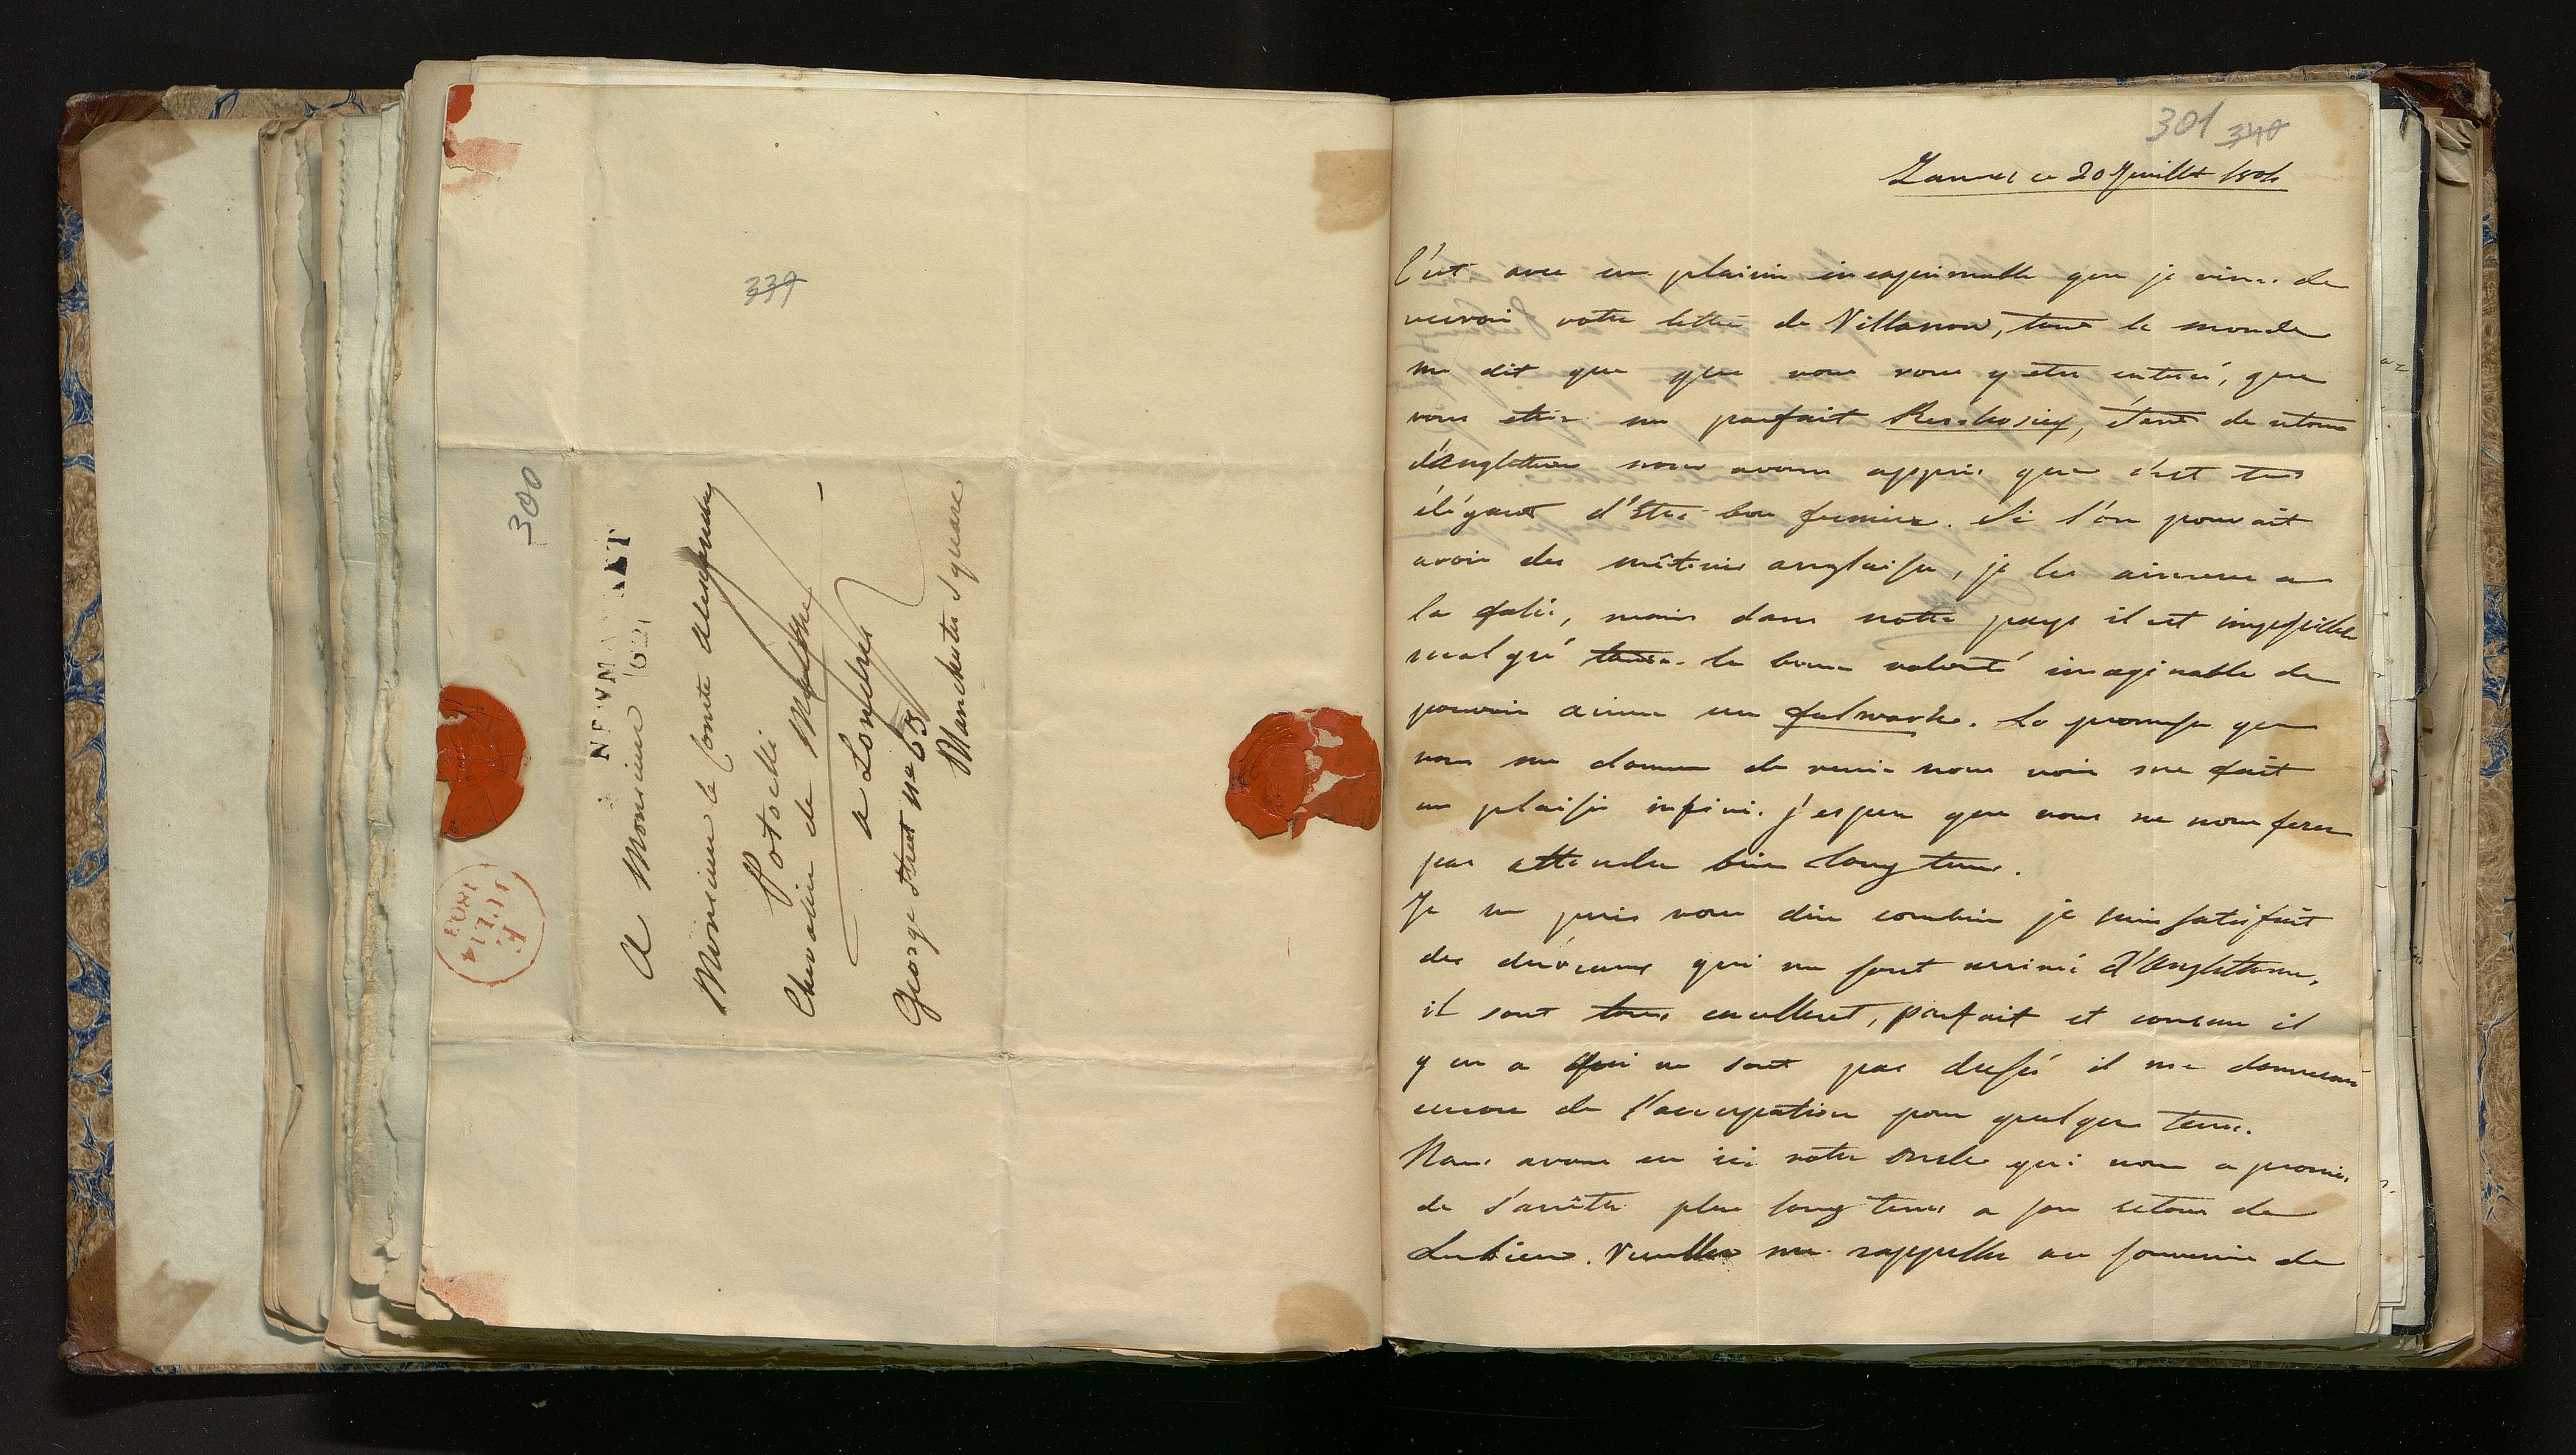 339
300
NEWMARKET
62
A Monsieur
Monsieur le Comte Alexandre
Potocki
Chevalier de Malthe
a Londres
George Street No 63
Manchester Square
E
JUL 14
1803
301 340
ce 20 Juillet 1804
C'est avec un plaisir inexprimable que je viens de
recevoir votre lettre de Villanow, tout le monde
me dit que que vous vous y etes enterré, que
vous etes un parfait, étant de retour
d'angleterre nous avons appris que c'est tres
élégant d'être bon fermier. Si l'on pouvait
avoir des métairies anglaises, je les aimerai a
la folie, mais dans notre pays il est impossible
malgré toute la bonne volonté imaginable de
pouvoir aimer un folwark. La promesse que
vous me donnez de venir nous voir me fait
un plaisir infini. j'espere que vous ne nous ferez
pas attendre bien long tems.
Je ne puis vous dire combien je suis satisfait
des qui me sont arrivé d'Angleterre,
il sont tous excellent, parfait et comme il
y en a qui ne sont pas dressés il me donneront
encore de l'occupation pour quelque tems.
Nous avons eu ici votre oncle qui nous a promis
de s'arrêter plus long tems a son retour de
Lubien. Veuillez me rappeller au souvenir de